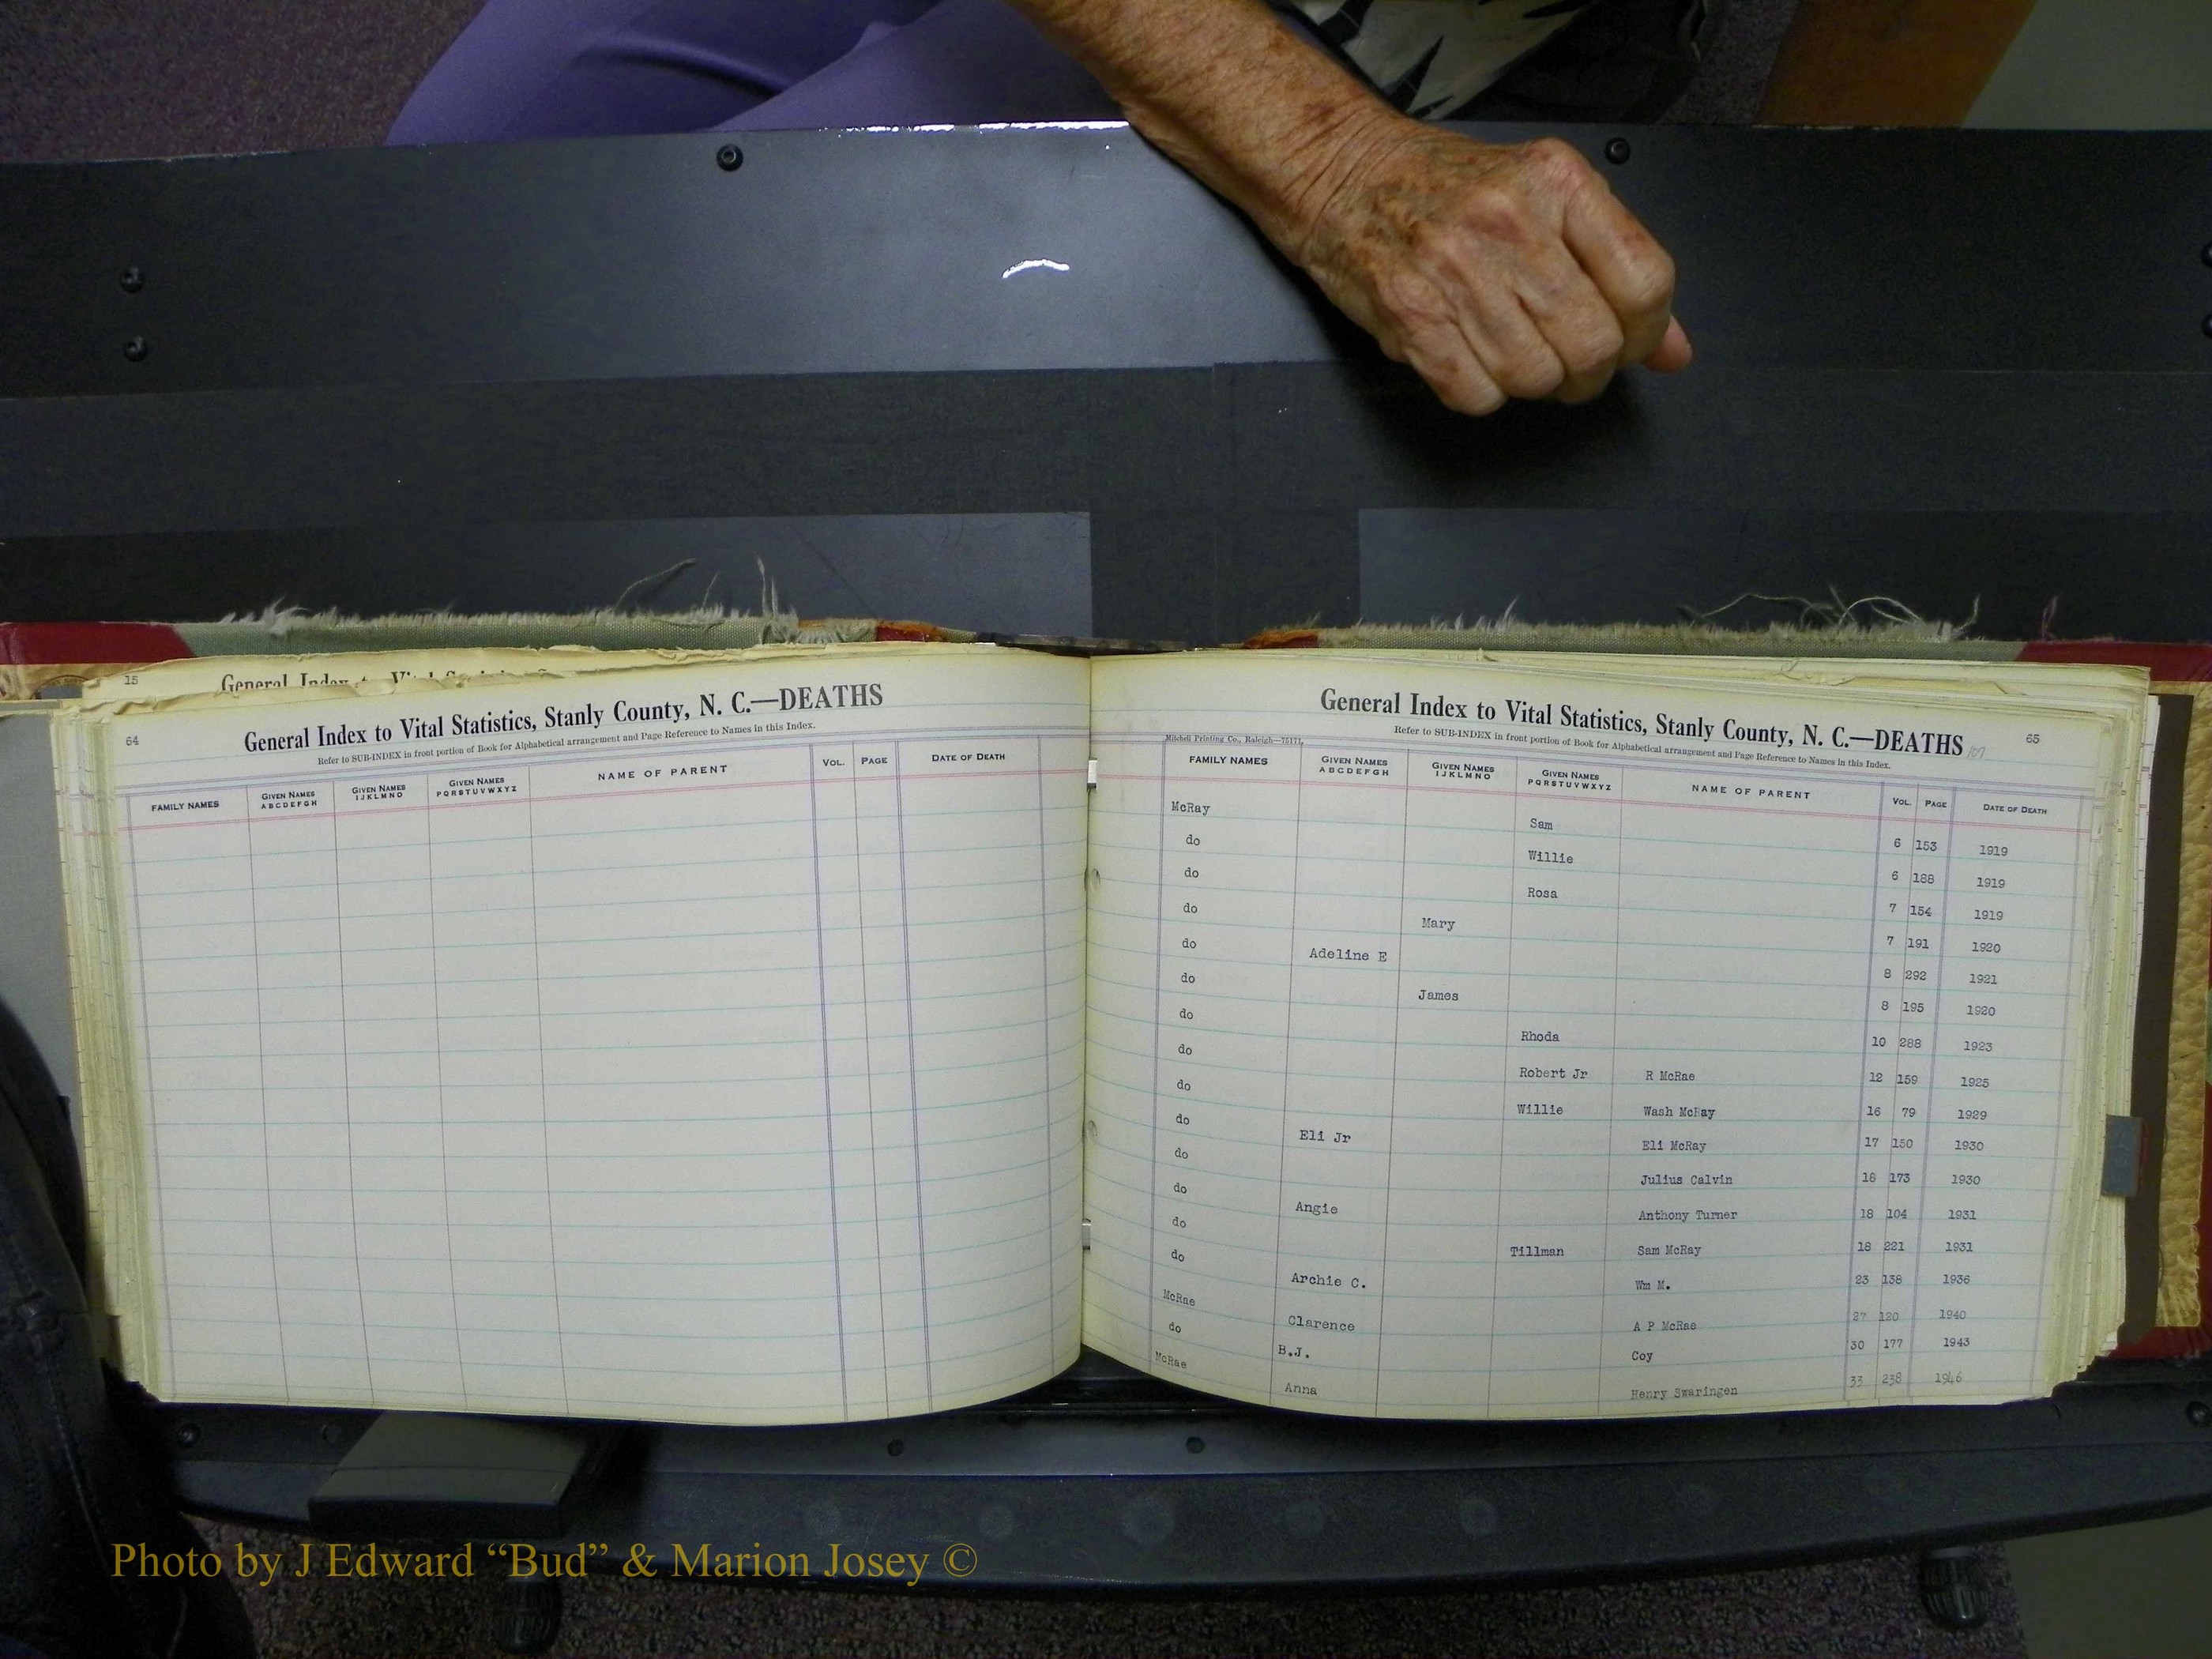 15 General Index to Vital Statistics
64
General Index to Vital Statistics, Stanly County, N. C.—DEATHS
Refer to SUB-INDEX in front portion of Book for Alphabetical arrangement and Page Reference to Names in this Index.
FAMILY NAMES GIVEN NAMES ABCDEFGH GIVEN NAMES IJKLMNO GIVEN NAMES PQRSTUVWXYZ NAME OF PARENT VOL. PAGE DATE OF DEATH
General Index to Vital Statistics, Stanly County, N. C.—DEATHS 107
65
Refer to SUB-INDEX in front portion of Book for Alphabetical arrangement and Page Reference to Names in this Index.
Mitchell Printing Co., Raleigh—75171.
FAMILY NAMES GIVEN NAMES ABCDEFGH GIVEN NAMES IJKLMNO GIVEN NAMES PQRSTUVWXYZ NAME OF PARENT VOL. PAGE DATE OF DEATH
McRay Sam 6 153 1919
do Willie 6 188 1919
do Rosa 7 154 1919
do Mary 7 191 1920
do Adeline E 8 292 1921
do James 8 195 1920
do Rhoda 10 288 1923
do Robert Jr R McRae 12 159 1925
do Willie Wash McRay 16 79 1929
do Eli Jr Eli McRay 17 150 1930
do Julius Calvin 18 173 1930
do Angie Anthony Turner 18 104 1931
do Tillman Sam McRay 18 221 1931
do Archie C. Wm M. 23 138 1936
McRae Clarence A P McRae 27 120 1940
do B.J. Coy 30 177 1943
McRae Anna Henry Swaringen 33 238 1946
Photo by J Edward “Bud” & Marion Josey ©